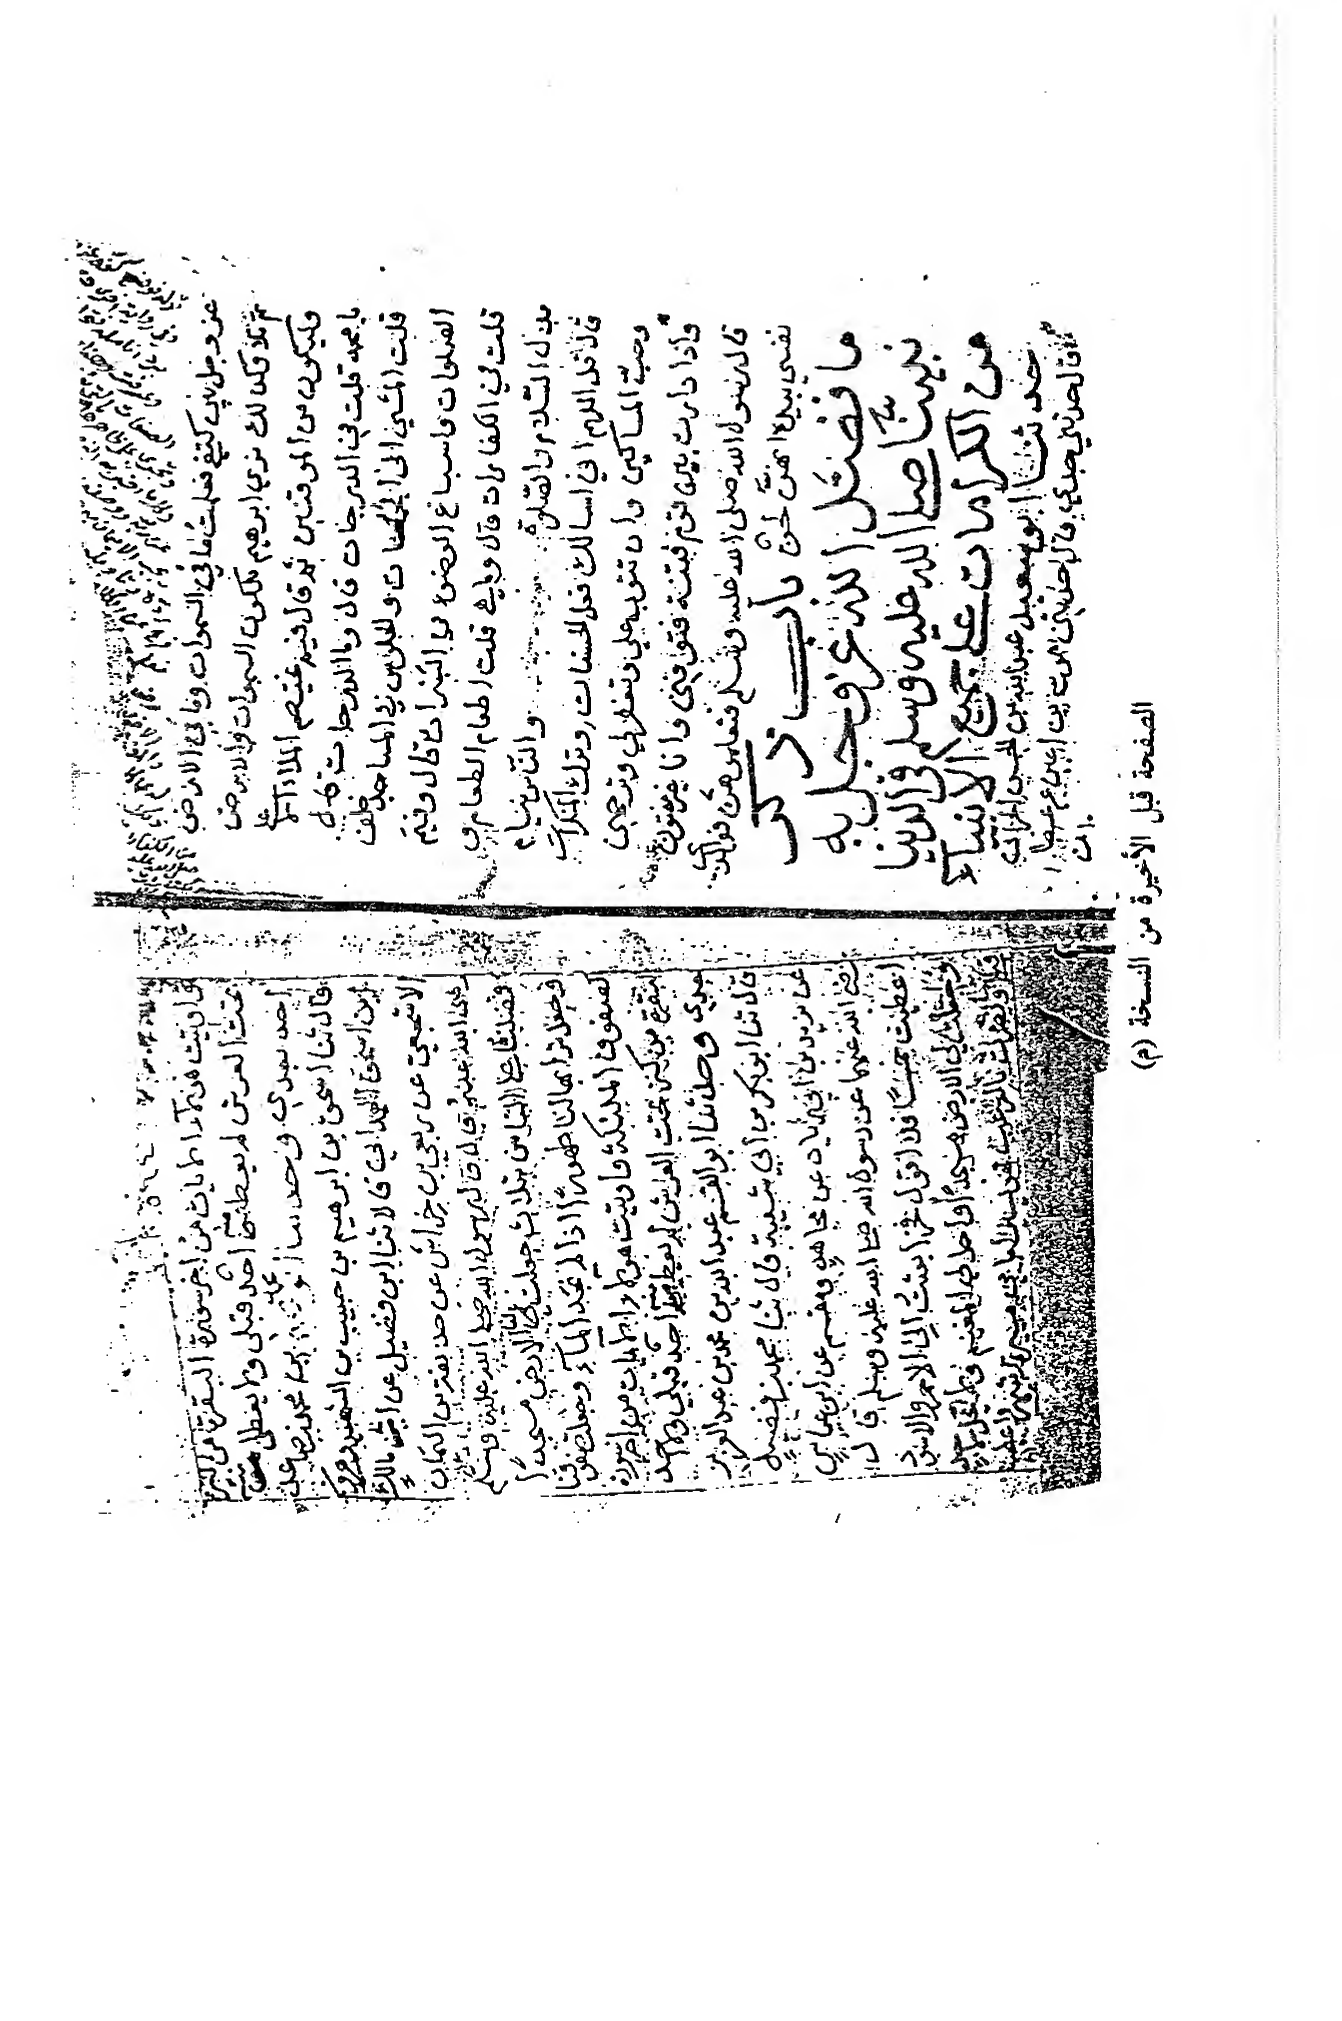 عز وجل بين كتفي فعلمت ما في السموات وما في الارض
ثم تلا وكذلك نري ابرهيم ملكوت السموات والارض
وليكون من الموقنين ثم قال فيم يختصم الملأ الاعلى
يا محمد قلت في الدرجات قال وما الدرجات
قلت المشي الى الجماعات والجلوس في المساجد خلف
الصلوات واسباغ الوضوء في السبرات قال وفيم
قلت في الكفارات قال وما هي قلت اطعام الطعام و
بذل السلام والصلوة والناس نيام
قال قل اللهم اني اسالك فعل الحسنات وترك المنكرات
وحب المساكين وان تتوب علي وتغفر لي وترحمني
واذا اردت بين قوم فتنة فتوفني وانا غير مفتون
قال رسول الله صلى الله عليه وسلم فتعلموهن فوالذي
نفسي بيده انهن لحق باب ذكر
ما فضل الله عز وجل به
نبينا صلى الله عليه وسلم في الدنيا
من الكرامات على جميع الانبياء
حدثنا ابو شعيب عبد الله بن الحسن الحراني
قال حدثني جدي قال حدثني موسى بن اعين عن عطا
اوتيت هذه الايات من اخر سورة البقرة من كنز
تحت العرش لم يعطه احد قبلي ولا يعطى
احد بعدي وحدثنا ابو بن محمد بن صاعد
قال ثنا اسحق بن ابرهيم بن حبيب بن الشهيد
ابن اسحق الهمداني قالا ثنا ابن فضيل عن ابي مالك
الاشجعي عن ربعي بن حراش عن حذيفة بن اليمان
رضي الله عنه قال قال رسول الله صلى الله عليه وسلم
فضلنا على الناس بثلاث جعلت لنا الارض مسجدا
وجعل ترابها لنا طهورا اذا لم نجد الماء وجعلت صفوفنا
كصفوف الملئكة واوتيت هولا الايات من اخر سورة
البقرة من كنز تحت العرش لم يعطه احد قبلي ولا احد
بعدي وحدثنا ابو القسم عبد الله بن محمد بن عبد العزيز
قال ثنا ابو بكر بن ابي شيبة قال ثنا محمد بن فضيل
عن يزيد بن ابي زياد عن مجاهد ومقسم عن ابن عباس
رضي الله عنهما عن رسول الله صلى الله عليه وسلم قال
اعطيت خمسا ولا اقول فخرا بعثت الى الاحمر والاسود
وجعلت لي الارض مسجدا واحل لي المغنم ولم يحل لاحد
قبلي ونصرت بالرعب
الصفحة قبل الأخيرة من النسخة (م)